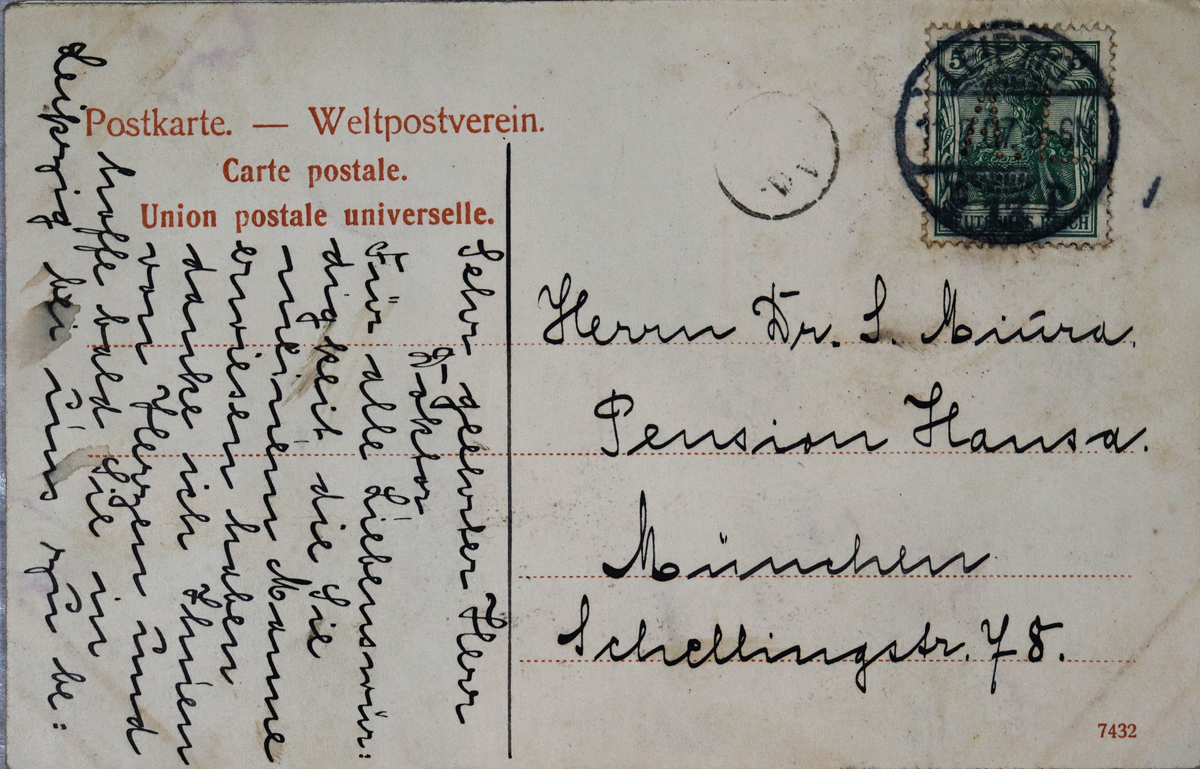 Postkarte. — Weltpostverein.
Carte postale.
Union postale universelle.
Sehr geehrter Herr
Doktor
Für alle Liebenswür:
digkeit die Sie
meinem Manne
erwiesen haben
danke ich Ihnen
von Herzen und
hoffe bald Sie in
Leipzig bei uns zu be:
5
5
LEIPZIG
DEUTSCHES REICH
Herrn Dr. S. Miura.
Pension Hansa.
München
Schellingstr. 78.
7432